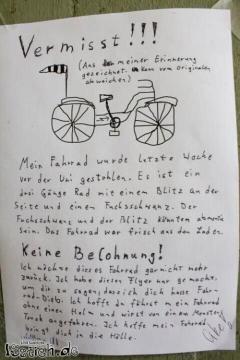 Vermisst!!!
(Aus meiner Erinnerung
gezeichnet. Kann vom Originalen
abweichen)
Mein Fahrrad wurde letzte Woche
vor der Uni gestohlen. Es ist ein
drei Gänge Rad mit einem Blitz an der
Seite und einem Fuchsschwanz. Der
Fuchsschwanz und der Blitz könnten abmontiert
sein. Das Fahrrad war frisch aus dem Laden.
Keine Belohnung!
Ich möchte dieses Fahrrad garnicht mehr
zurück. Ich habe diesen Flyer nur gemacht,
um dir zu sagen, dass ich dich hasse Fahr-
rad-Dieb. Ich hoffe du fährst mein Fahrrad
ohne einen Helm und wirst von einem Monster
Truck angefahren. Ich hoffe mein Fahrrad
bringt dich in die Hölle.